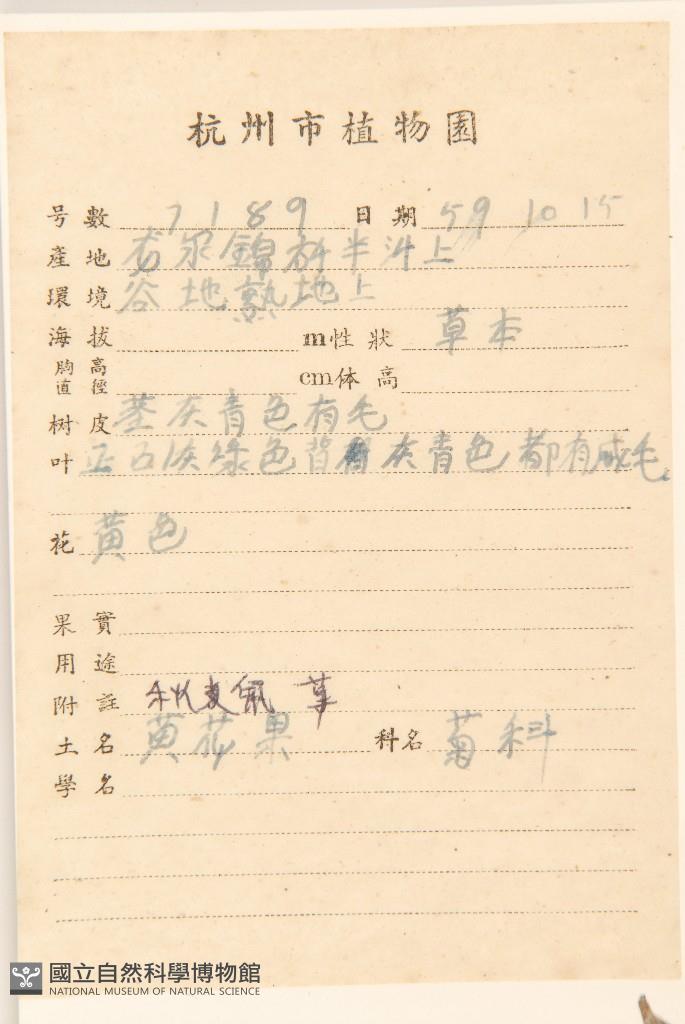 杭州市植物園
号數 7189 日期 59 10 15
產地 泉錦 半 上
環境 谷地熟地上
海拔 m性狀 草本
胸高直徑 cm体高
树皮 茎灰青色有毛
叶 正 灰綠色背 灰青色都有 毛
花 黃色
果實
用途
附註 草
土名 黄花果 科名 菊科
學名
國立自然科學博物館
NATIONAL MUSEUM OF NATURAL SCIENCE